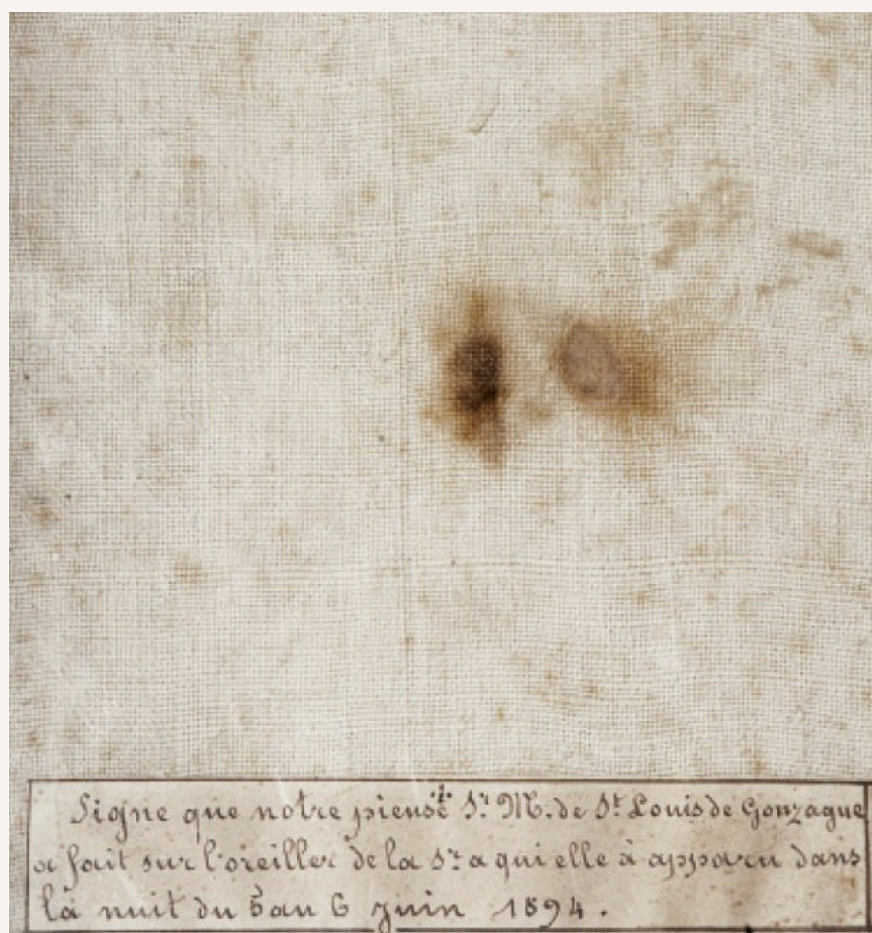 Signe que notre pieuse † Sr. M. de St Louis de Gonzague
a fait sur l'oreiller de la Sr. a qui elle à apparu dans
la nuit du 5 au 6 juin 1894.